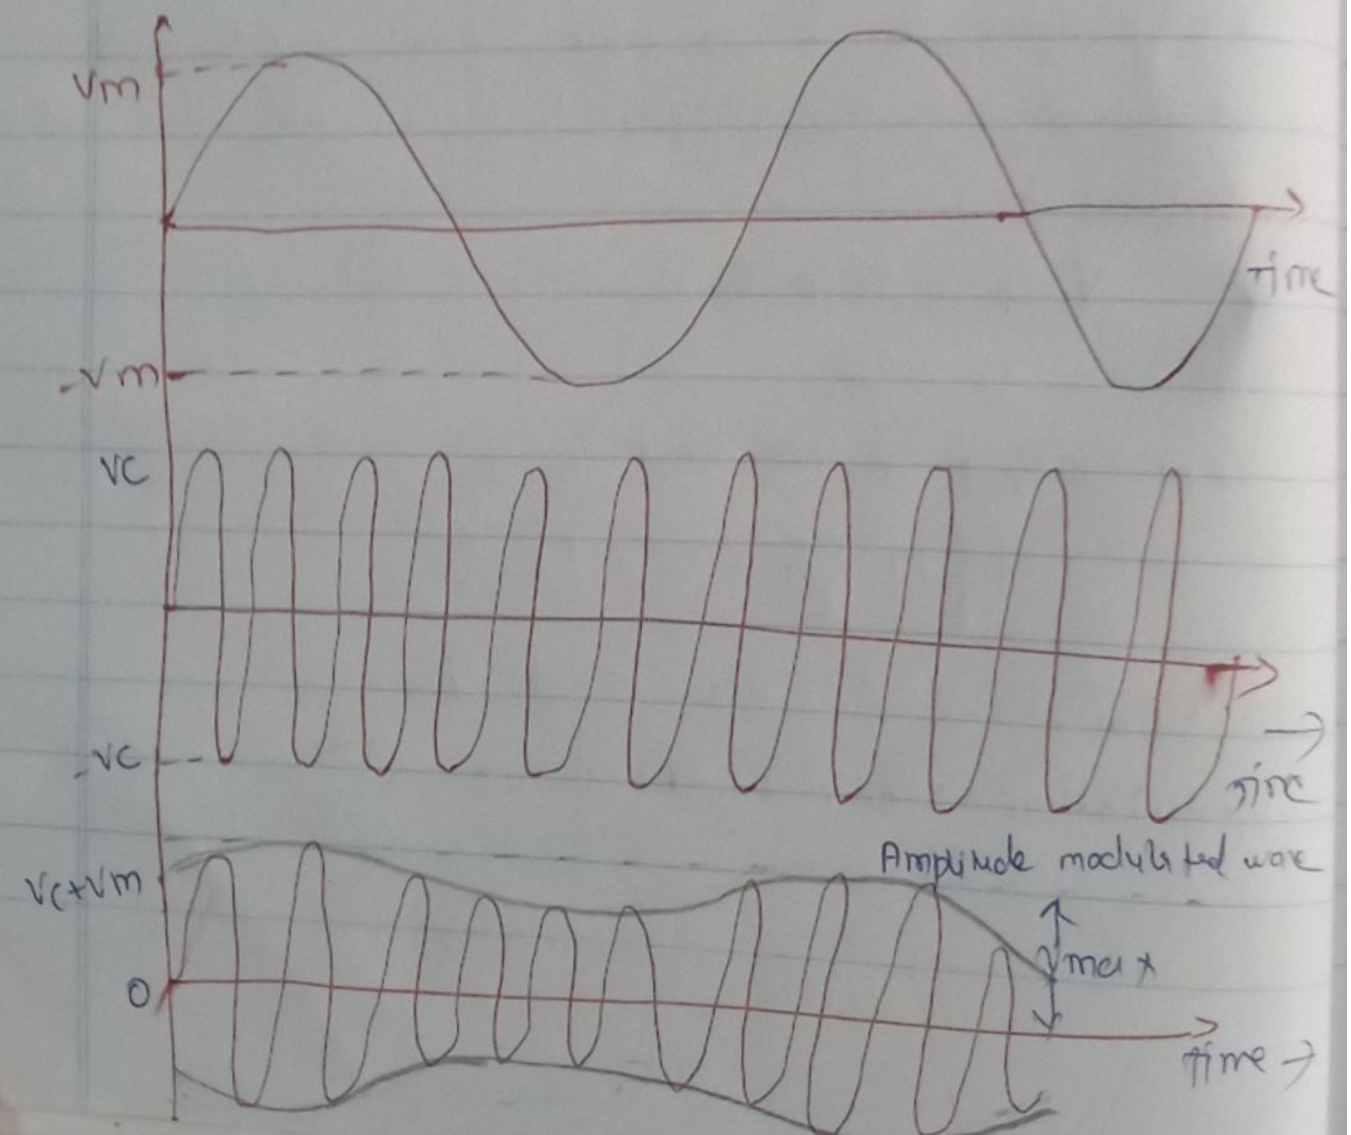 Vm
Time
-Vm
VC
-VC
Time
Amplitude modulated wave
Vc+Vm
Vmax
0
time →